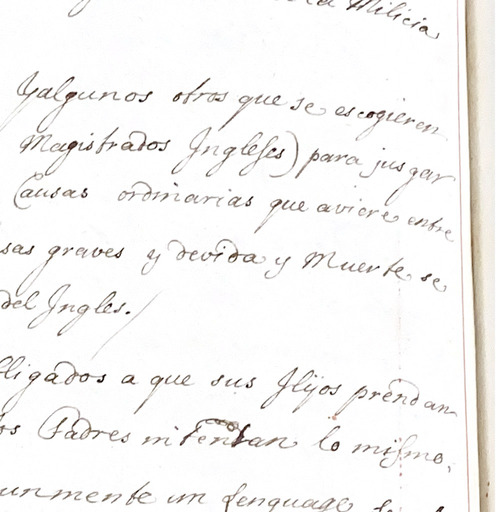 la Milicia
Yalgunos otros que se escogieren
Magistrados Ingleses) para jusgar
Causas ordinarias que aviere entre
sas graves y devida y Muerte se
del Ingles./
ligados a que sus Hijos prendan
os Padres intentan lo mismo,
unmente un lenguage